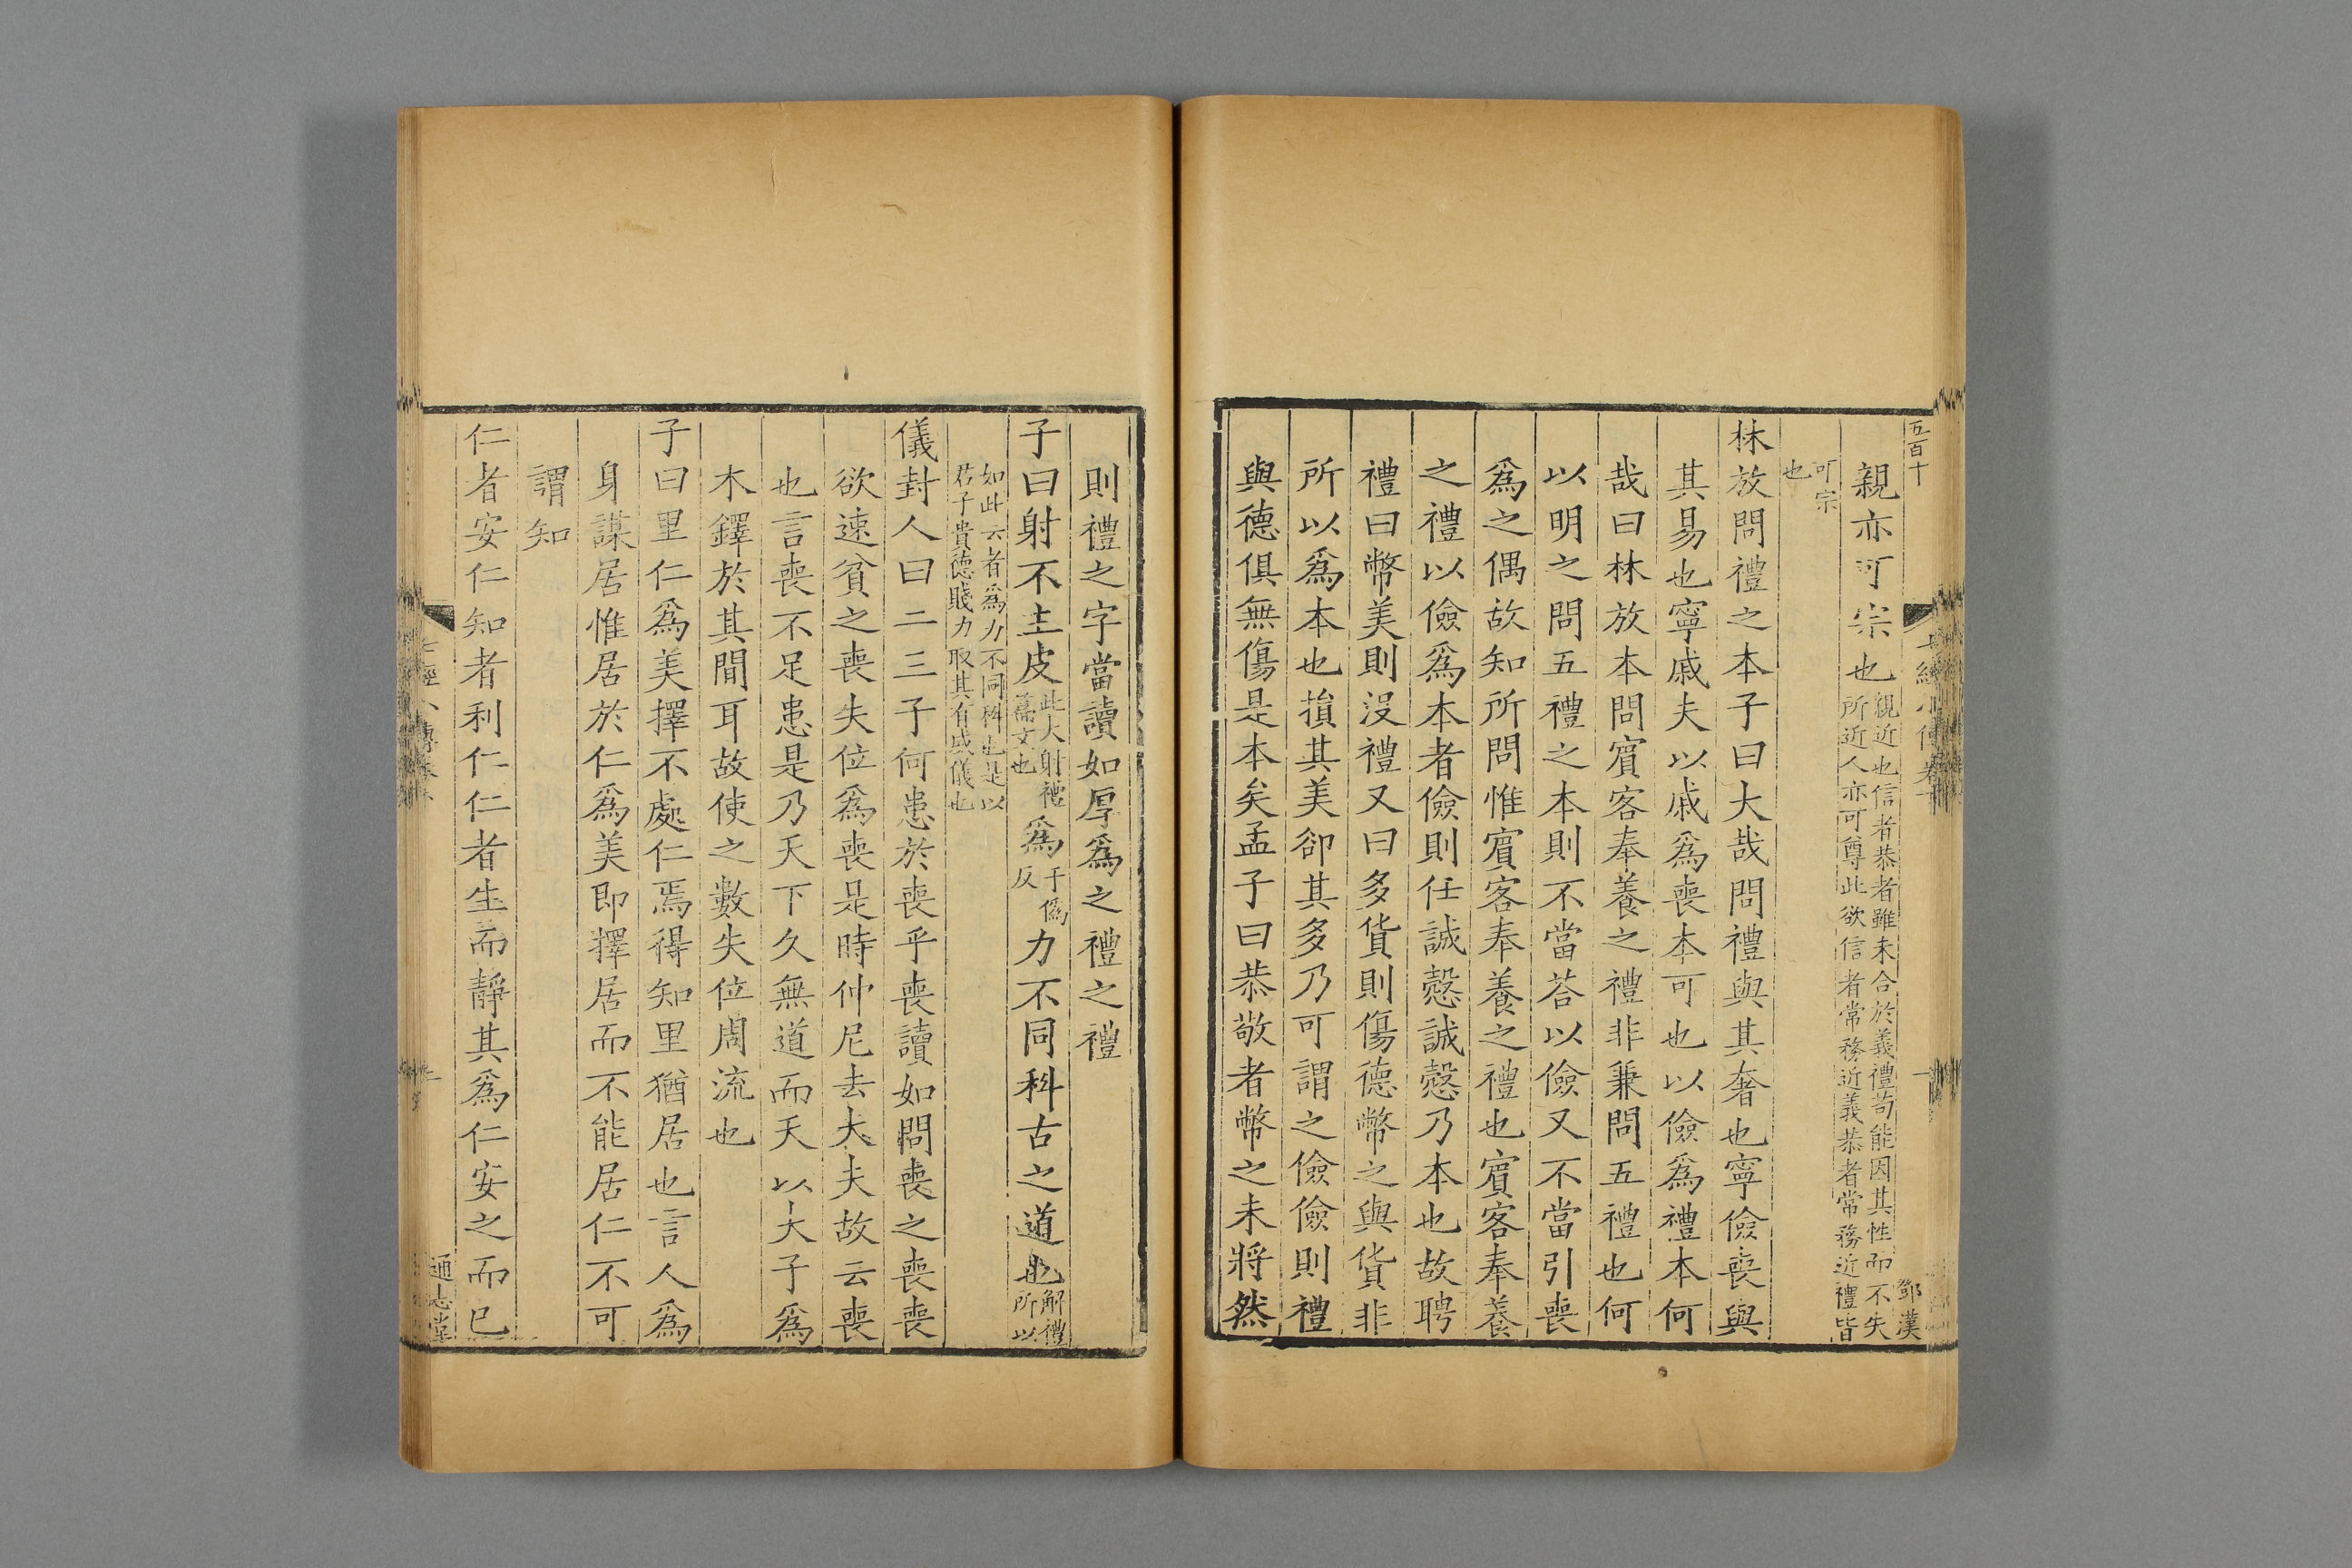 五百十
七經小傳卷下
一
鄧漢
親亦可宗也親近也信者恭者雖未合於義禮苟能因其性而不失所近人亦可尊此欲信者常務近義恭者常務近禮皆
可宗也
林放問禮之本子曰大哉問禮與其奢也寧儉喪與
其易也寧戚夫以戚爲喪本可也以儉爲禮本何
哉曰林放本問賓客奉養之禮非兼問五禮也何
以明之問五禮之本則不當荅以儉又不當引喪
爲之偶故知所問惟賓客奉養之禮也賓客奉養
之禮以儉爲本者儉則任誠慤誠慤乃本也故聘
禮曰幣美則沒禮又曰多貨則傷德幣之與貨非
所以爲本也損其美卻其多乃可謂之儉儉則禮
與德俱無傷是本矣孟子曰恭敬者幣之未將然
則禮之字當讀如厚爲之禮之禮
子曰射不主皮此大射禮爲文也爲于僞反力不同科古之道也解禮所以
如此云者爲力不同科也是以君子貴德賤力取其有威儀也
儀封人曰二三子何患於喪乎喪讀如問喪之喪喪
欲速貧之喪失位爲喪是時仲尼去大夫故云喪
也言喪不足患是乃天下久無道而天以夫子爲
木鐸於其間耳故使之數失位周流也
子曰里仁爲美擇不處仁焉得知里猶居也言人爲
身謀居惟居於仁爲美即擇居而不能居仁不可
謂知
仁者安仁知者利仁仁者生而靜其爲仁安之而已
通志堂